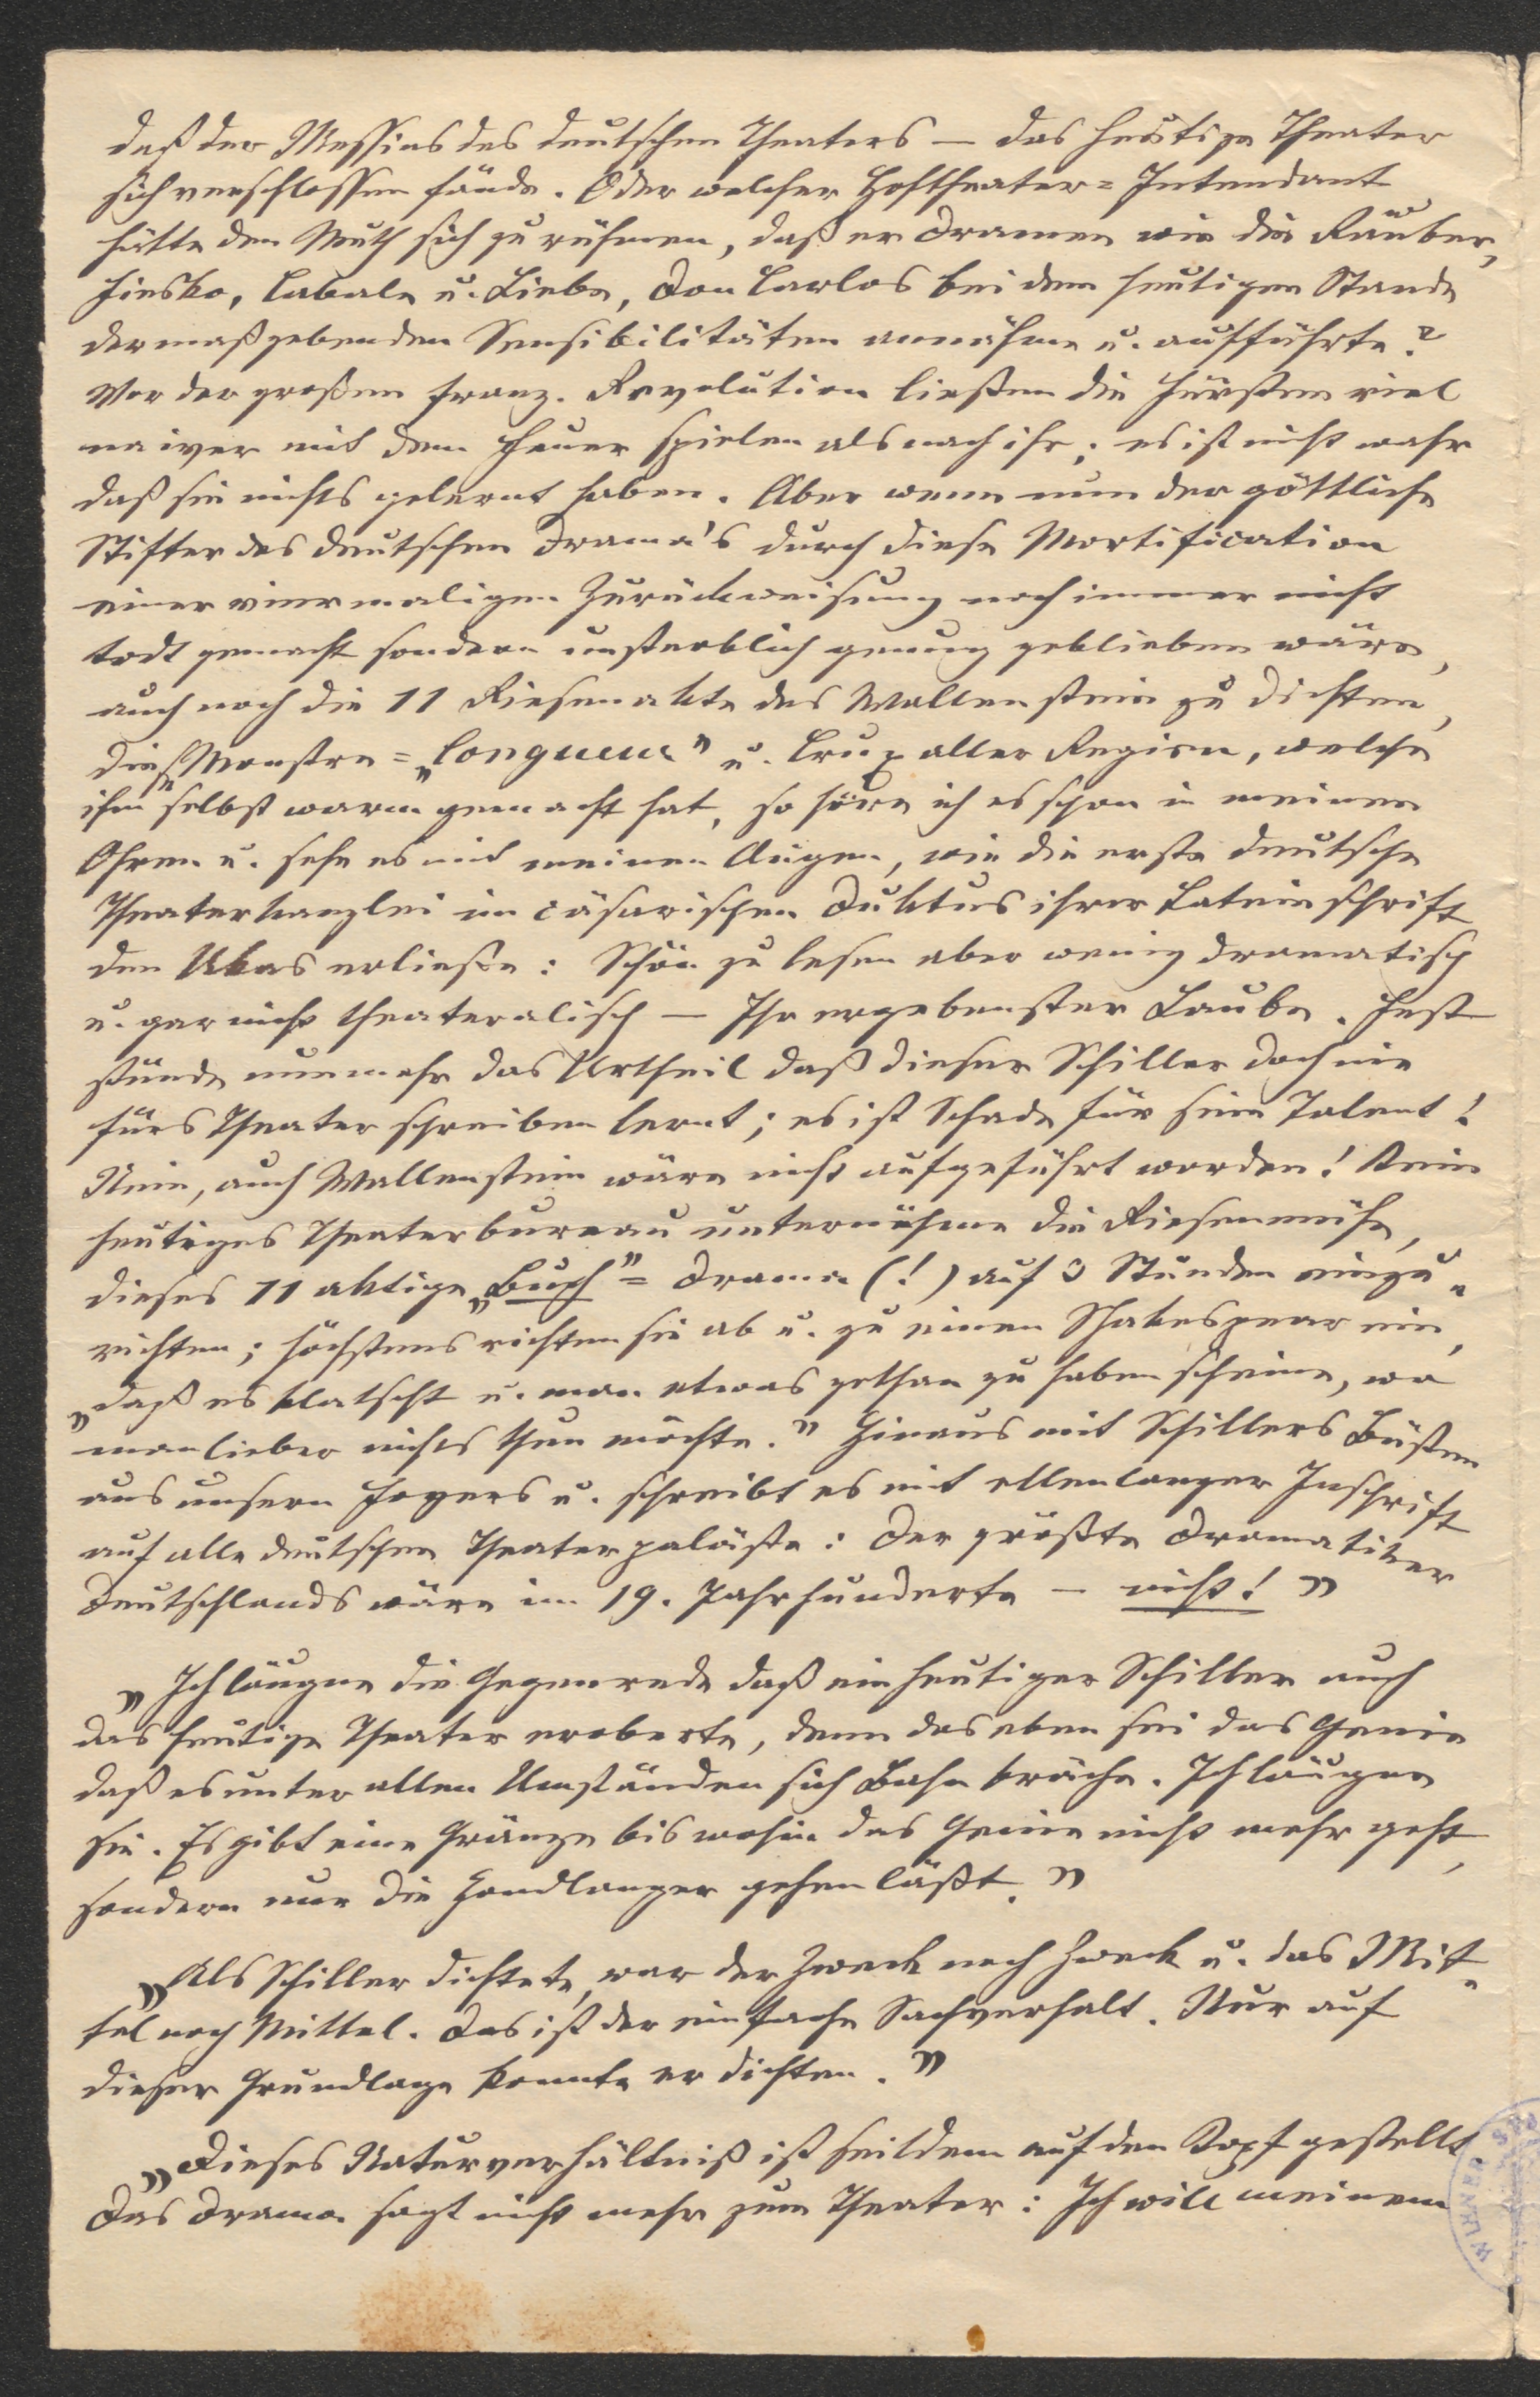 daß der Messias des deutschen Theaters — das heutige Theater
sich verschlossen fände. Oder welcher Hoftheater=Intendant
hätte den Muth sich zu rühmen, daß er Dramen wie die Räuber,
Fiesko, Cabale u. Liebe, Don Carlos bei dem heutigen Stande
der maßgebenden Sensibilitäten annähme u. aufführte?
Vor der großen franz. Revolution ließen die Fürsten viel
naiver mit dem Feuer spielen als nach ihr; es ist nicht wahr
daß sie nichts gelernt haben. Aber wenn nun der göttliche
Stifter des deutschen Drama's durch diese Mortification
einer viermaligen Zurückweisung noch immer nicht
todt gemacht sondern unsterblich genug geblieben wäre,
auch noch die 11 Riesenakte des Wallenstein zu dichten,
dieß Monstre=„Longueur" u. Crux aller Regieen, welche
ihm selbst warm gemacht hat, so höre ich es schon in meinen
Ohren u. sehe es mit meinen Augen, wie die erste deutsche
Theaterkanzlei im cäsarischen Duktus ihrer Lateinschrift
den Ukas erließe: Schön zu lesen aber wenig dramatisch
u. gar nicht theateralisch — Ihr ergebenster Laube. Fest
stünde nunmehr das Urtheil daß dieser Schiller doch nie
fürs Theater schreiben lernt; es ist Schade für sein Talent!
Nein, auch Wallenstein wäre nicht aufgeführt worden! Kein
heutiges Theaterbureau unternähme die Riesenmühe,
dieses 11 aktige „Buch"=Drama (!) auf 3 Stunden einzu„
richten; höchstens richten sie ab u. zu einen Shakespear ein,
„daß es klatscht u. man etwas gethan zu haben scheine, wo
man lieber nichts thun möchte." Hinaus mit Schillers Büsten
aus unsern Foyers u. schreibt es mit ellenlanger Inschrift
auf alle deutschen Theaterpaläste: Der größte Dramatiker
Deutschlands wäre im 19. Jahrhunderte — nicht!"
„Ich läugne die Gegenrede daß ein heutiger Schiller auch
das heutige Theater eroberte, denn das eben sei das Genie
daß es unter allen Umständen sich Bahn bräche. Ich läugne
sie. Es gibt eine Gränze bis wohin das Genie nicht mehr geht,
sondern nur die Handlanger gehen läßt."
„Als Schiller dichtete, war der Zweck noch Zweck u. das Mit„
tel noch Mittel. Das ist der einfache Sachverhalt. Nur auf
dieser Grundlage konnte er dichten."
„Dieses Naturverhältniß ist seitdem auf den Kopf gestellt
Das Drama sagt nicht mehr zum Theater: Ich will meinem